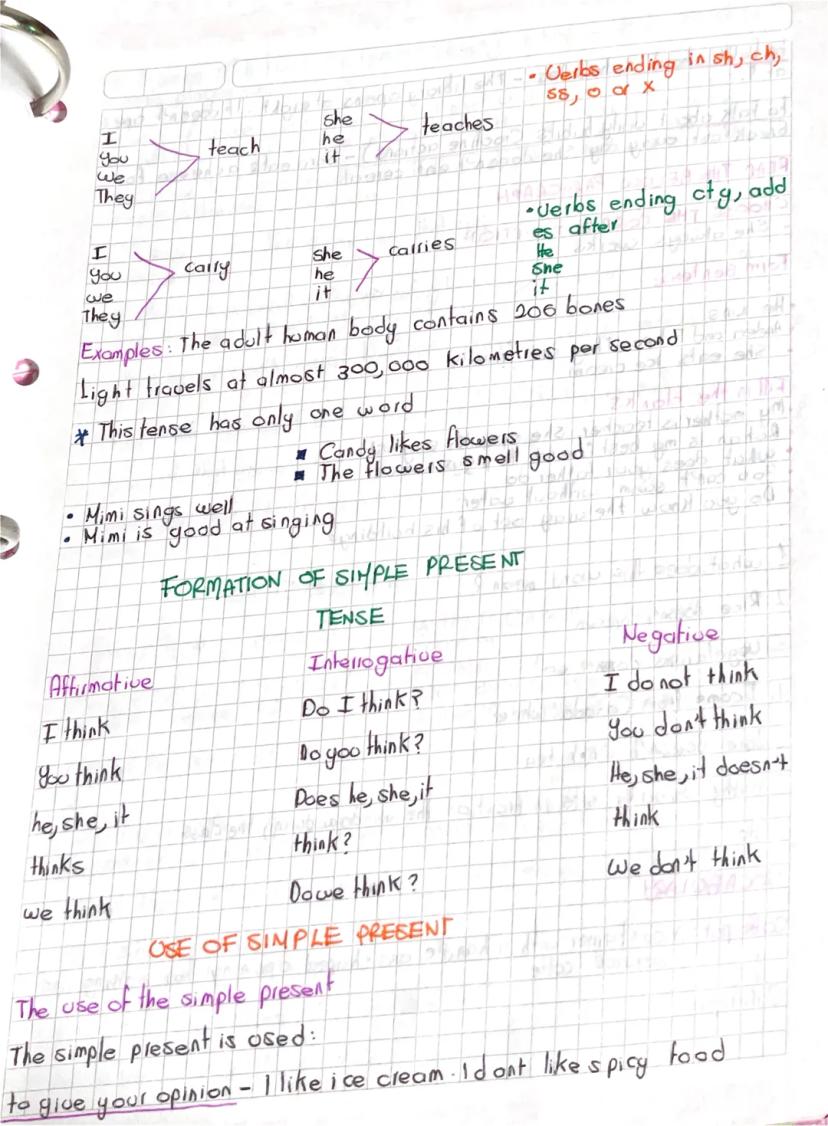 • Verbs ending in sh, ch,
ss, o or x
I
You
we
They
teach
She
he
it
teaches
•Verbs ending cty, add
es after
He
She
it
I
You
we
They
carry
She
he
it
carries
Examples: The adult human body contains 206 bones
Light travels at almost 300,000 kilometres per second
* This tense has only one word
▪ Candy likes flowers
▪ The flowers smell good
• Mimi sings well
• Mimi is good at singing
FORMATION OF SIMPLE PRESENT
TENSE
Affirmative
I think
You think
he, she, it
thinks
we think
Interrogative
Do I think?
Do you think?
Does he, she, it
think?
Do we think?
Negative
I do not think
You don't think
He, she, it doesn't
think
We don't think
USE OF SIMPLE PRESENT
The use of the simple present
The simple present is used:
to give your opinion - I like ice cream. I dont like spicy food